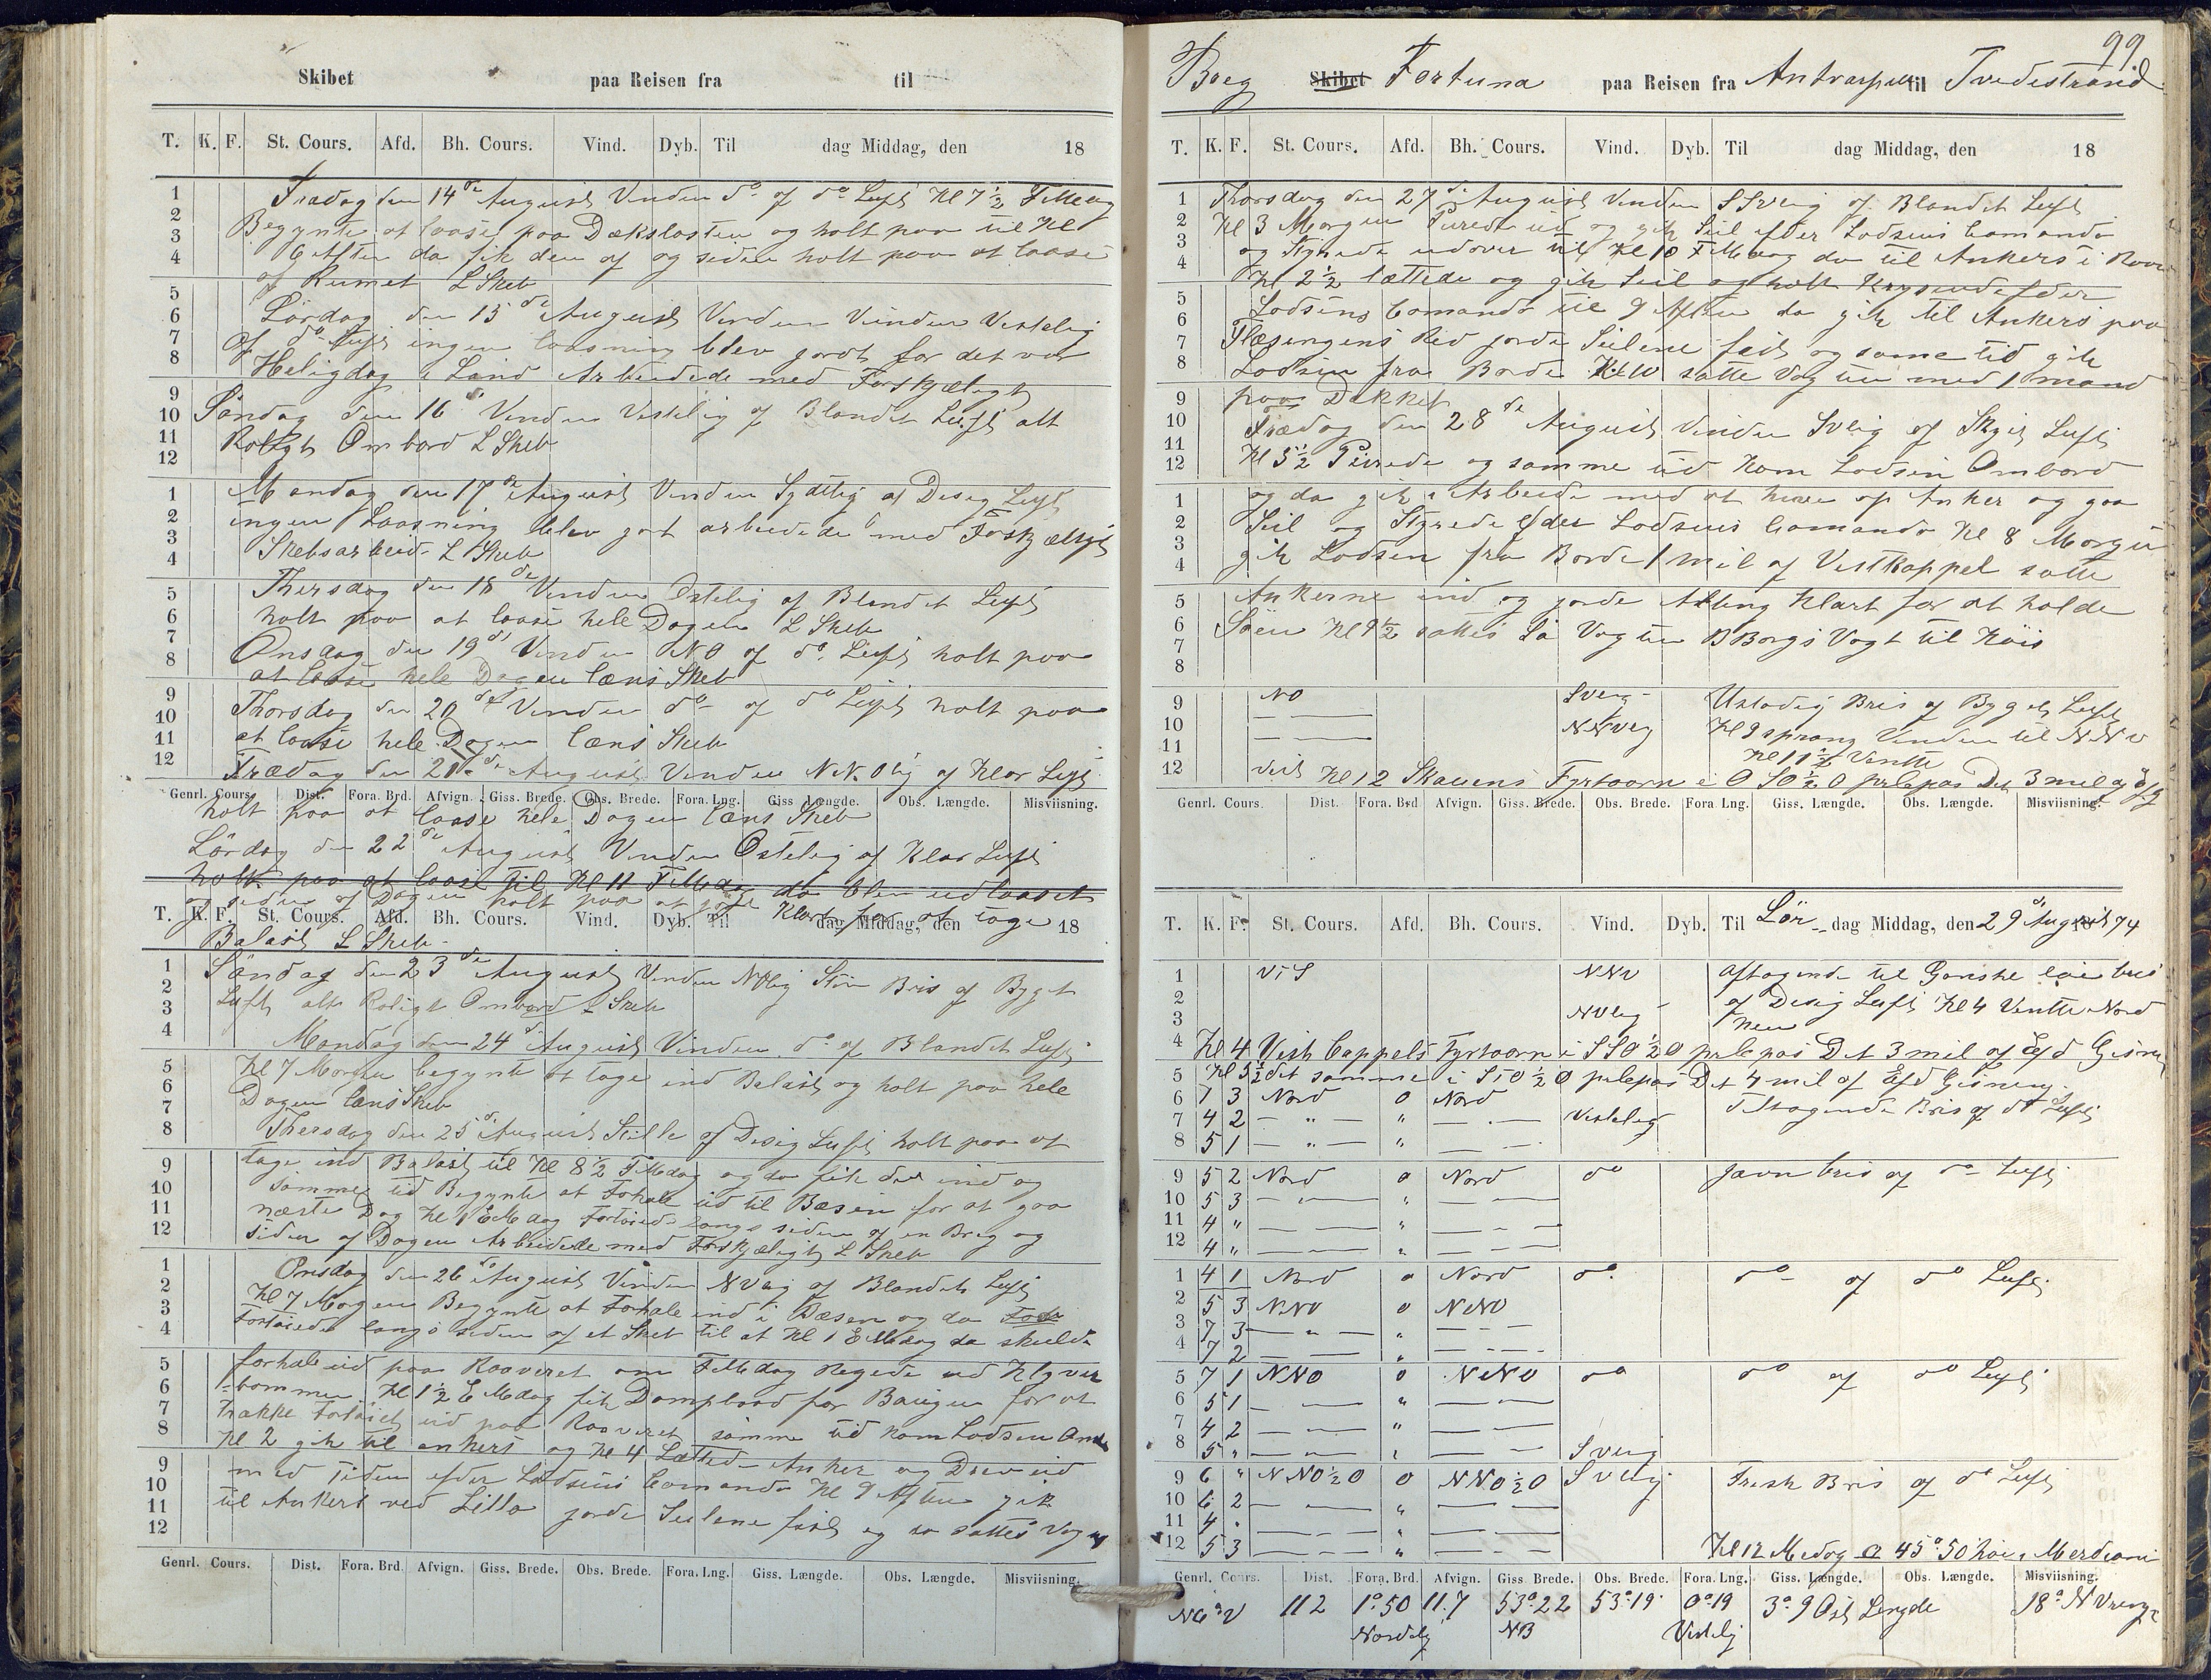 Skibet paa Reisen fra til
T. K. F. St. Cours. Afd. Bh. Cours. Vind. Dyb. Til dag Middag, den 18
Fradag den 14de August Vinden do af do Luft Kl 7 1/2 FMdag
Begynte at laase paa Dækslasten og holt paa til Kl
6 Aften da fik den af og siden holt paa at laase
af Rumet L Skeb
Lördag den 15de August Vinden Vinden Vestelig
af do Luft ingen laasning blev gordt for det var
Heligdag i Land Arbeidede med Forskjæligt
Söndag den 16 Vinden Vestelig af Blandet Luft alt
Roligt Ombord L Skeb
Mandag den 17de August Vinden Sydtlig af Desig Luft
ingen Laasning blev gort arbeidede med Foskjæligt
Skebsarbeid L Skeb
Thersdag den 18de Vinden Ostelig af Blandet Luft
holt paa at laase hele Dagen L Skeb
Onsdag den 19de Vinden NO af do Luft holt paa
at laase hele Dagen læns Skeb
Thorsdag den 20de Vinden do af do Luft holt paa
at laase hele Dagen læns Skeb
Frædag den 21de August Vinden N.N.Olig af Klar Luft
Genrl. Cours. Dist. Fora. Brd. Afvign. Giss. Brede. Obs. Brede. Fora. Lng. Giss Længde. Obs. Længde. Misviisning.
holt paa at laase hele Dagen læns Skeb
Lördag den 22de August Vinden Ostelig af Klar Luft
holt paa at laase til Kl 11 FMdag da blev udlaaset
og siden af Dagen holt paa at gore Klart for at tage
T. K. F. St. Cours. Afd. Bh. Cours. Vind. Dyb. Til dag Middag, den 18
Balast L Skeb
Söndag den 23de August Vinden NOlig Stiv Bris af Byget
Luft alt Roligt Ombord L Skeb
Mandag den 24de August Vinden do af Blandet Luft
Kl 7 Morgen begynte at tage ind Balast og holt paa hele
Dagen læns Skeb
Thersdag den 25de August Stille af Desig Luft holt paa at
tage ind Balast til Kl 8 1/2 FMdag og da fik den ind og
samme tid Begynte at Fohale ud til Basen for at gaa
næste Dag Kl 1 EMdag Fortöiede langs siden af en Breg og
siden af Dagen Arbeidede med Forskjæligt L Skeb
Onsdag den 26de August Vinden NVlig af Blandet Luft
Kl 7 Morgen Begynte at Forhale ind i Basen og da
Fortöiede langs siden af et Skeb til at Kl 1 EMdag da skulde
forhale ud paa Raaveret om FMdag Regede ud Klyver
bommen Kl 1 1/2 EMdag fik Dampbaad for Baugen for at
trække Fortöiet ud paa Raaveret samme tid kom Lodsen Omb
Kl 2 gik til ankers og Kl 4 Lætted Anker og Drev ud
med Tiden efder Lodsens Comando Kl 9 Aften gik
til Ankers ved Lillo gorde Seilene fast og da sattes Vagt
Genrl. Cours. Dist. Fora. Brd. Afvign. Giss. Brede. Obs. Brede. Fora. Lng. Giss. Længde. Obs. Længde. Misviisning.
99.
Breg Skibet Fortuna paa Reisen fra Antvarpen til Tvedestrand
T. K. F. St. Cours. Afd. Bh. Cours. Vind. Dyb. Til dag Middag, den 18
Thorsdag den 27de August Vinden SSVlig af Blandet Luft
Kl 3 Morgen Purede ud og gik Seil efder Lodsens Comando
og Styrede udover til Kl 10 FMdag da til Ankers i
Kl 2 1/2 lættede og gik Seil og holt Krysende efder
Lodsens Comando til 9 Aften da gik til Ankers paa
Flæsengens Red gorde Seilene fast og samme tid gik
Lodsen fra Borde Kl 10 satte Vagten med 1 mand
paa Dækket
Frædag den 28de August Vinden SVlig af Skyet Luft
Kl 5 1/2 Purede og samme tid Kom Lodsen Ombord
og da gik i Arbeide med at hive op Anker og gaa
Seil og Styrede efder Lodsens Comando Kl 8 Morgen
gik Lodsen fra Borde 1 mil af Vestkappel satte
Ankerne ind og gorde Alting Klart for at holde
Söen Kl 9 1/2 sattes Sö Vagten B Borgs Vagt til Köis
NO SVlig Ustadig Bris af Byget Luft
NNVlig Kl 9 sprang Vinden til NNV
Kl 11 1/2 Vendte
Vest Kl 12 Skauens Fyrtaarn i OSO 1/2 O pr kpas Det 3 mil af
Genrl. Cours. Dist. Fora. Brd Afvign. Giss. Brede. Obs. Brede. Fora Lng. Giss. Længde. Obs. Længde. Misviisning.
T. K. F. St. Cours. Afd. Bh. Cours. Vind. Dyb. Til Lör dag Middag, den 29 August 1874
1 VtS NNV Aftagende til Ganske löie bris
2 af Desig Luft Kl 4 Vendte Nord
3 NVlig
4 Kl 4 Vest Cappels Fyrtaarn i SSO 1/2 O pr kpas Det 3 mil af
5 Kl 5 1/2 det samme i StO 1/2 O pr kpas Det 4 mil af
6 7 3 Nord 0 Nord Tiltagende Bris af do Luft
7 4 2 — " — " — Vestelig
8 5 1 — " — " —
9 5 2 Nord 0 Nord do Javn bris af do Luft
10 5 3 — " —
11 4 " — " —
12 4 " — " —
1 4 1 Nord 0 Nord do do af do Luft
2 5 3 NNO 0 NNO
3 7 3 — " — " —
4 7 2 — " —
5 7 1 NNO 0 NNO do do af do Luft
6 5 1 — " —
7 4 2 — " —
8 5 " — " — SVlig
9 6 " NNO 1/2 O 0 NNO 1/2 O SVlig Fresk Bris af do Luft
10 6 2 — " —
11 4 " — " —
12 5 3 — " — Kl 12 Medag 45°.50
Genrl. Cours. Dist. Fora. Brd. Afvign. Giss Brede. Obs. Brede. Fora. Lng. Giss. Længde. Obs. Længde. Misviisning.
N6°V 112 1°.50 11.7 53°.22 53°.19 0°.19 3°.9 Ost Lengde 18° N Vring
Nordelig NB Vestelig